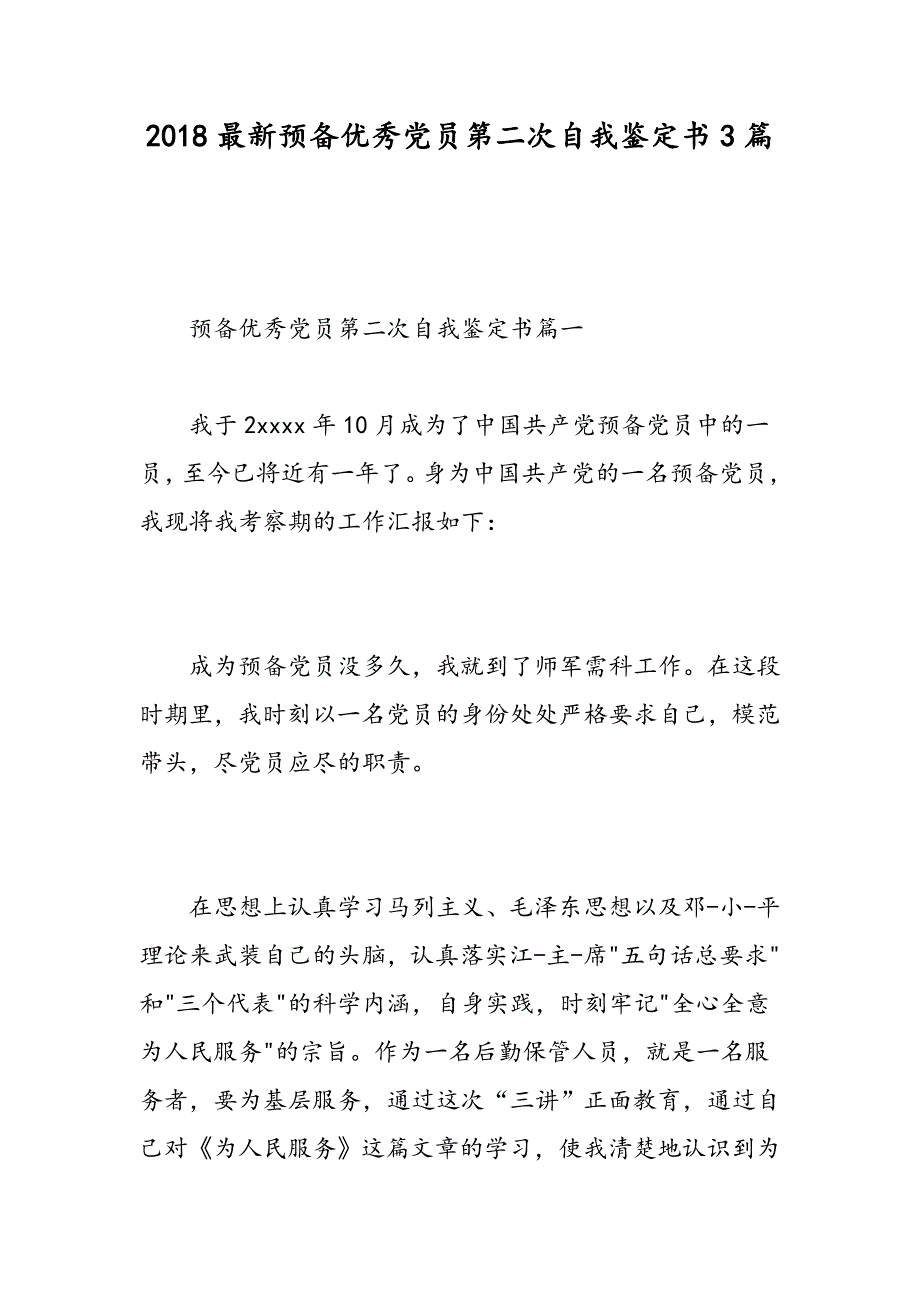 2018最新预备优秀党员第二次自我鉴定书3篇
预备优秀党员第二次自我鉴定书篇一
我于2xxxx年10月成为了中国共产党预备党员中的一
员，至今已将近有一年了。身为中国共产党的一名预备党员，
我现将我考察期的工作汇报如下：
成为预备党员没多久，我就到了师军需科工作。在这段
时期里，我时刻以一名党员的身份处处严格要求自己，模范
带头，尽党员应尽的职责。
在思想上认真学习马列主义、毛泽东思想以及邓-小-平
理论来武装自己的头脑，认真落实江-主-席"五句话总要求"
和"三个代表"的科学内涵，自身实践，时刻牢记"全心全意
为人民服务"的宗旨。作为一名后勤保管人员，就是一名服
务者，要为基层服务，通过这次“三讲”正面教育，通过自
己对《为人民服务》这篇文章的学习，使我清楚地认识到为